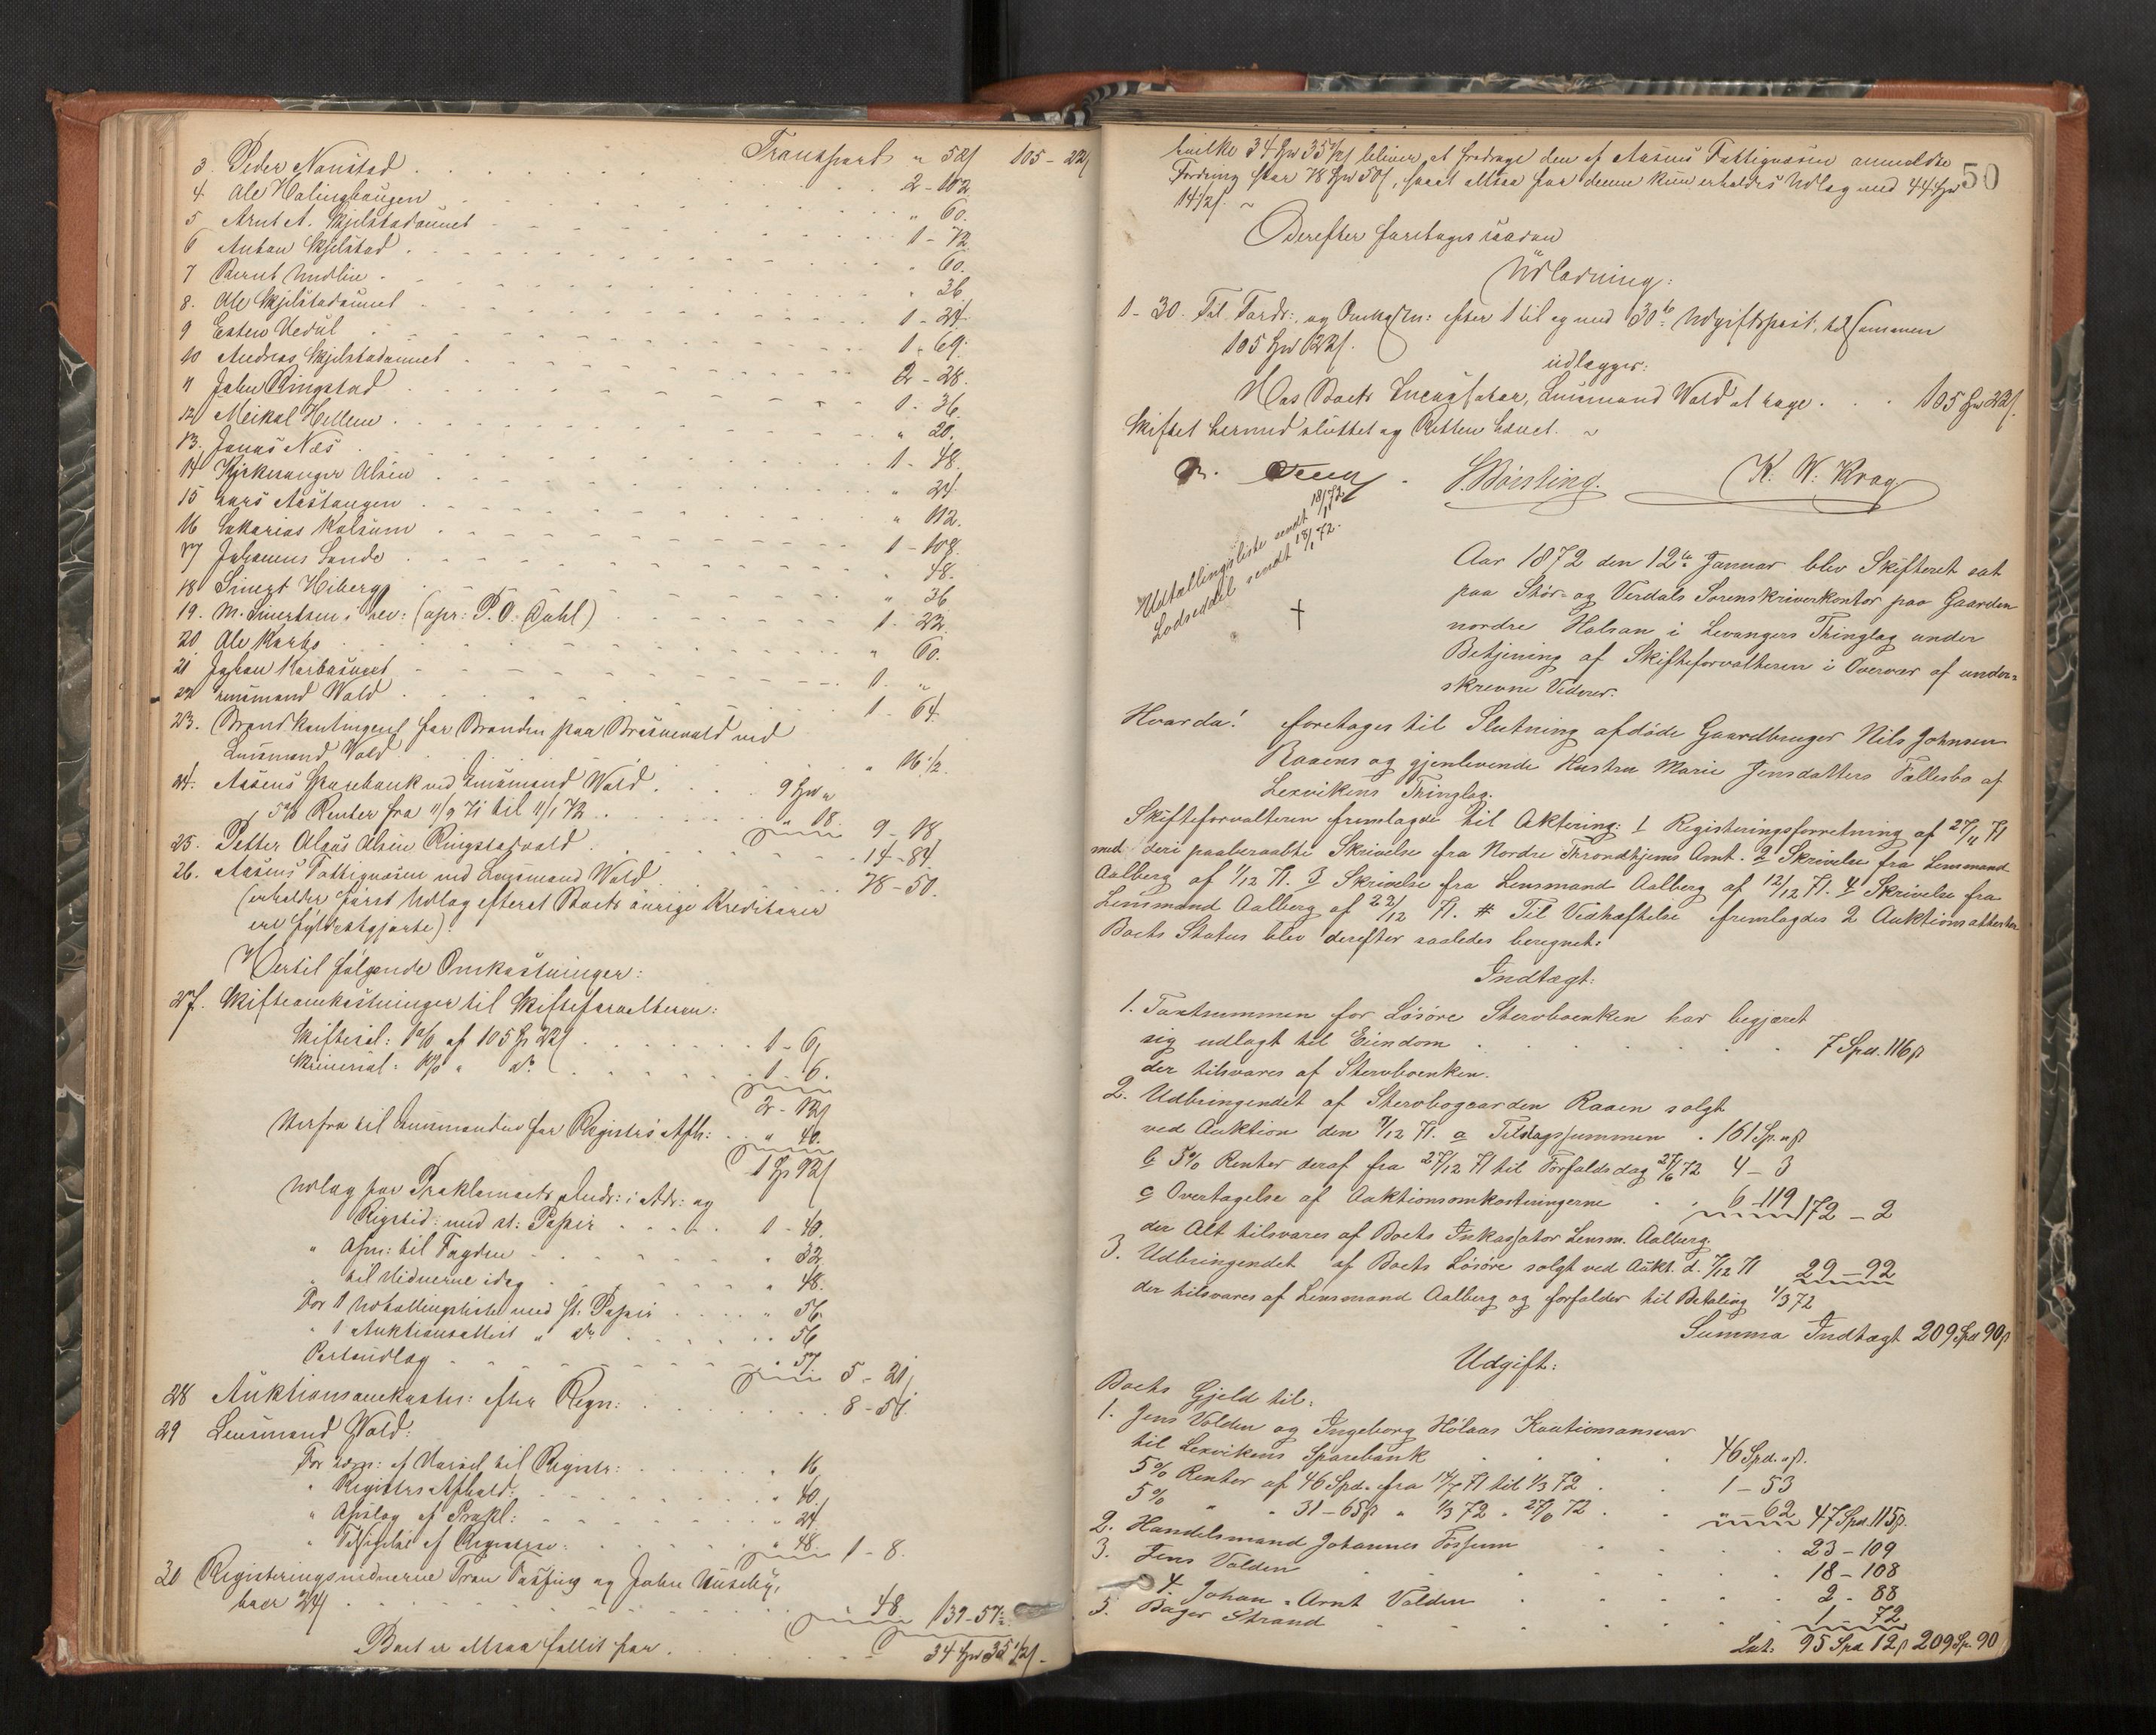 Transport " 52ß 105-22ß
3. Peder Nonstad
4. Ole Holinghaugen 2-102
5 Arnt A. Skjelstadaunet " 60.
6 Anton Skjelstad 1-72
7 Bernt Undlin " 60.
8. Ole Skjelstadaunet " 36
9 Esten Vedul 1-24
10 Andreas Skjelstadaunet 1-69.
11 John Ringstad 2-28.
12 Meikal Hellem 1-36.
13. Jonas Næs " 20.
14 Kirkesanger Olsen 1-48
15 Lars Aastangen " 24
16 Sakarias Kolsum " 112.
17 Johannes Sande 1-108.
18 Sivert Hiberg " 48.
19. M. Sivertsens (opr: P. O. Dahl) " 36
20 Ole Karbø 1-22.
21 Johan Karbøauget " 60.
22 Lensmand Wold 1-"
23. Brandkontingent for Branden paa Braanevold ved
Lensmand Wold 1-64
" 16½.
24. Aasens Sparebank ved Lensmand Wold 9 Spd "
5% Renter fra 11/9 71 til 11/1 72 " 18. 9-18
25. Petter Olaus Olsen Ringstadvald 14-84
26. Aasens Fattigvæsen ved Lensmand Wold 78-50.
(erholder først Udlæg efterat Boets øvrige Kreditorer
ere fyldestgjorte).
Hertil følgende Omkostninger:
27. Skifteomkostninger til Skifteforvalteren:
Skiftesal: 1% af 105 Sp 22ß 1-6
Skriversal: 1% " do. 1-6.
2-12ß
Herfra til Lensmanden for Registrs Afh: " 40.
1 Sp 92ß
Udlæg for Proklamaets Indr: i Adr: og
Rigstid: med st: Papir 1-40.
" til Fogden " 32
" til Vidnerne idag " 48.
For 1 Udtallingsliste med st. Papir " 56.
" 1 Auktionsattest " do. " 56
Portoudlæg " 57. 5-21
28 Auktionsomkostn: efter Regn: 8-54.
29 Lensmand Wold:
For af Varsel til Registr: " 16
" Registrs Afhold: " 40
" Opslag af Prokl: " 24
" af Registrs: " 48. 1-8.
30 Registreringsvidnerne og John Huseby,
hver 24ß " 48 139-57½
Boet er altsaa fallit for 34 Spd 35½ß.
50
hvilke 34 Spd 35½ß bliver at fradrage den af Aasens Fattigvæsen anmeldte
Fordring stor 78 Spd 50ß, saaat altsaa for denne kun erholdes Udlæg med 44 Spd
14½ß. ~
Derefter foretages saadan
Udlodning:
1-30. Til Fordr: og Omkostn: efter 1 til og med 30te Udgiftspost, tilsammen
105 Spd 22ß.
udlægges:
Hos Boets Incassator, Lensmand Wold at hæve 105 Spd 22ß.
Skiftet hermed sluttet og Retten hævet. ~
S. Børsting. K. W. Krog
Udtallingsliste sendt 18/1 72
Lodseddel sendt 18/1 72.
†
Aar 1872 den 12te Januar blev Skifteret sat
paa Stør- og Verdals Sorenskriverkontor paa Gaarden
nordre Halsan i Levangers Thinglag under
Betjening af Skifteforvalteren i Overvær af under=
skrevne Vidner.
Hvorda! foretoges til Slutning afdøde Gaardbruger Nils Johnsen
Raaens og gjenlevende Hustru Marie Jensdatters Fællesbo af
Lexvikens Thinglag.
Skifteforvalteren fremlagde til Aktering: 1 Registreringsforretning af 27/11 71
med deri paaberaabte Skrivelse fra Nordre Throndhjems Amt. 2 Skrivelse fra Lensmand
Aalberg af 1/12 71. 3 Skrivelse fra Lensmand Aalberg af 12/12 71. 4 Skrivelse fra
Lensmand Aalberg af 22/12 71. # Til Vedhæftelse fremlagdes 2 Auktionsattester
Boets Status blev derefter saaledes beregnet:
Indtægt:
1. Taxtsummen for Løsøre Stervboenken har begjæret
sig udlagt til Eiendom 7 Spd. 116ß
der tilsvares af Stervboenken.
2. Udbringendet af Stervbogaarden Raaen solgt
ved Auktion den 7/12 71. a Tilslagssummen 161 Sp. "ß
b 5% Renter deraf fra 27/12 71 til Forfaldsdag 27/6 72 4-3
c Overtagelse af Auktionsomkostningerne 6-119 172-2
der Alt tilsvares af Boets Inkassator Lensm. Aalberg.
3. Udbringendet af Boets Løsøre solgt ved Aukt. d. 7/12 71 29-92
der tilsvares af Lensmand Aalberg og forfalder til Betaling 1/3 72
Summa Indtægt 209 Spd 90ß
Udgift:
Boets Gjeld til:
1. Jens Volden og Ingeborg Hølaas Kautionsansvar
til Lexvikens Sparebank 46 Spd. "ß.
5% Renter af 46 Spd. fra 14/7 71 til 1/3 72 1-53
5% " " 31-65ß " 1/3 72 " 27/6 72 " 62 47 Spd. 115ß.
2. Handelsmand Johannes Fossum 23-109
3. Jens Volden 18-108
4. Johan Arnt Volden 2-88
5. Bager Strand 1-72
Lat: 95 Spd 12ß 209 Sp. 90